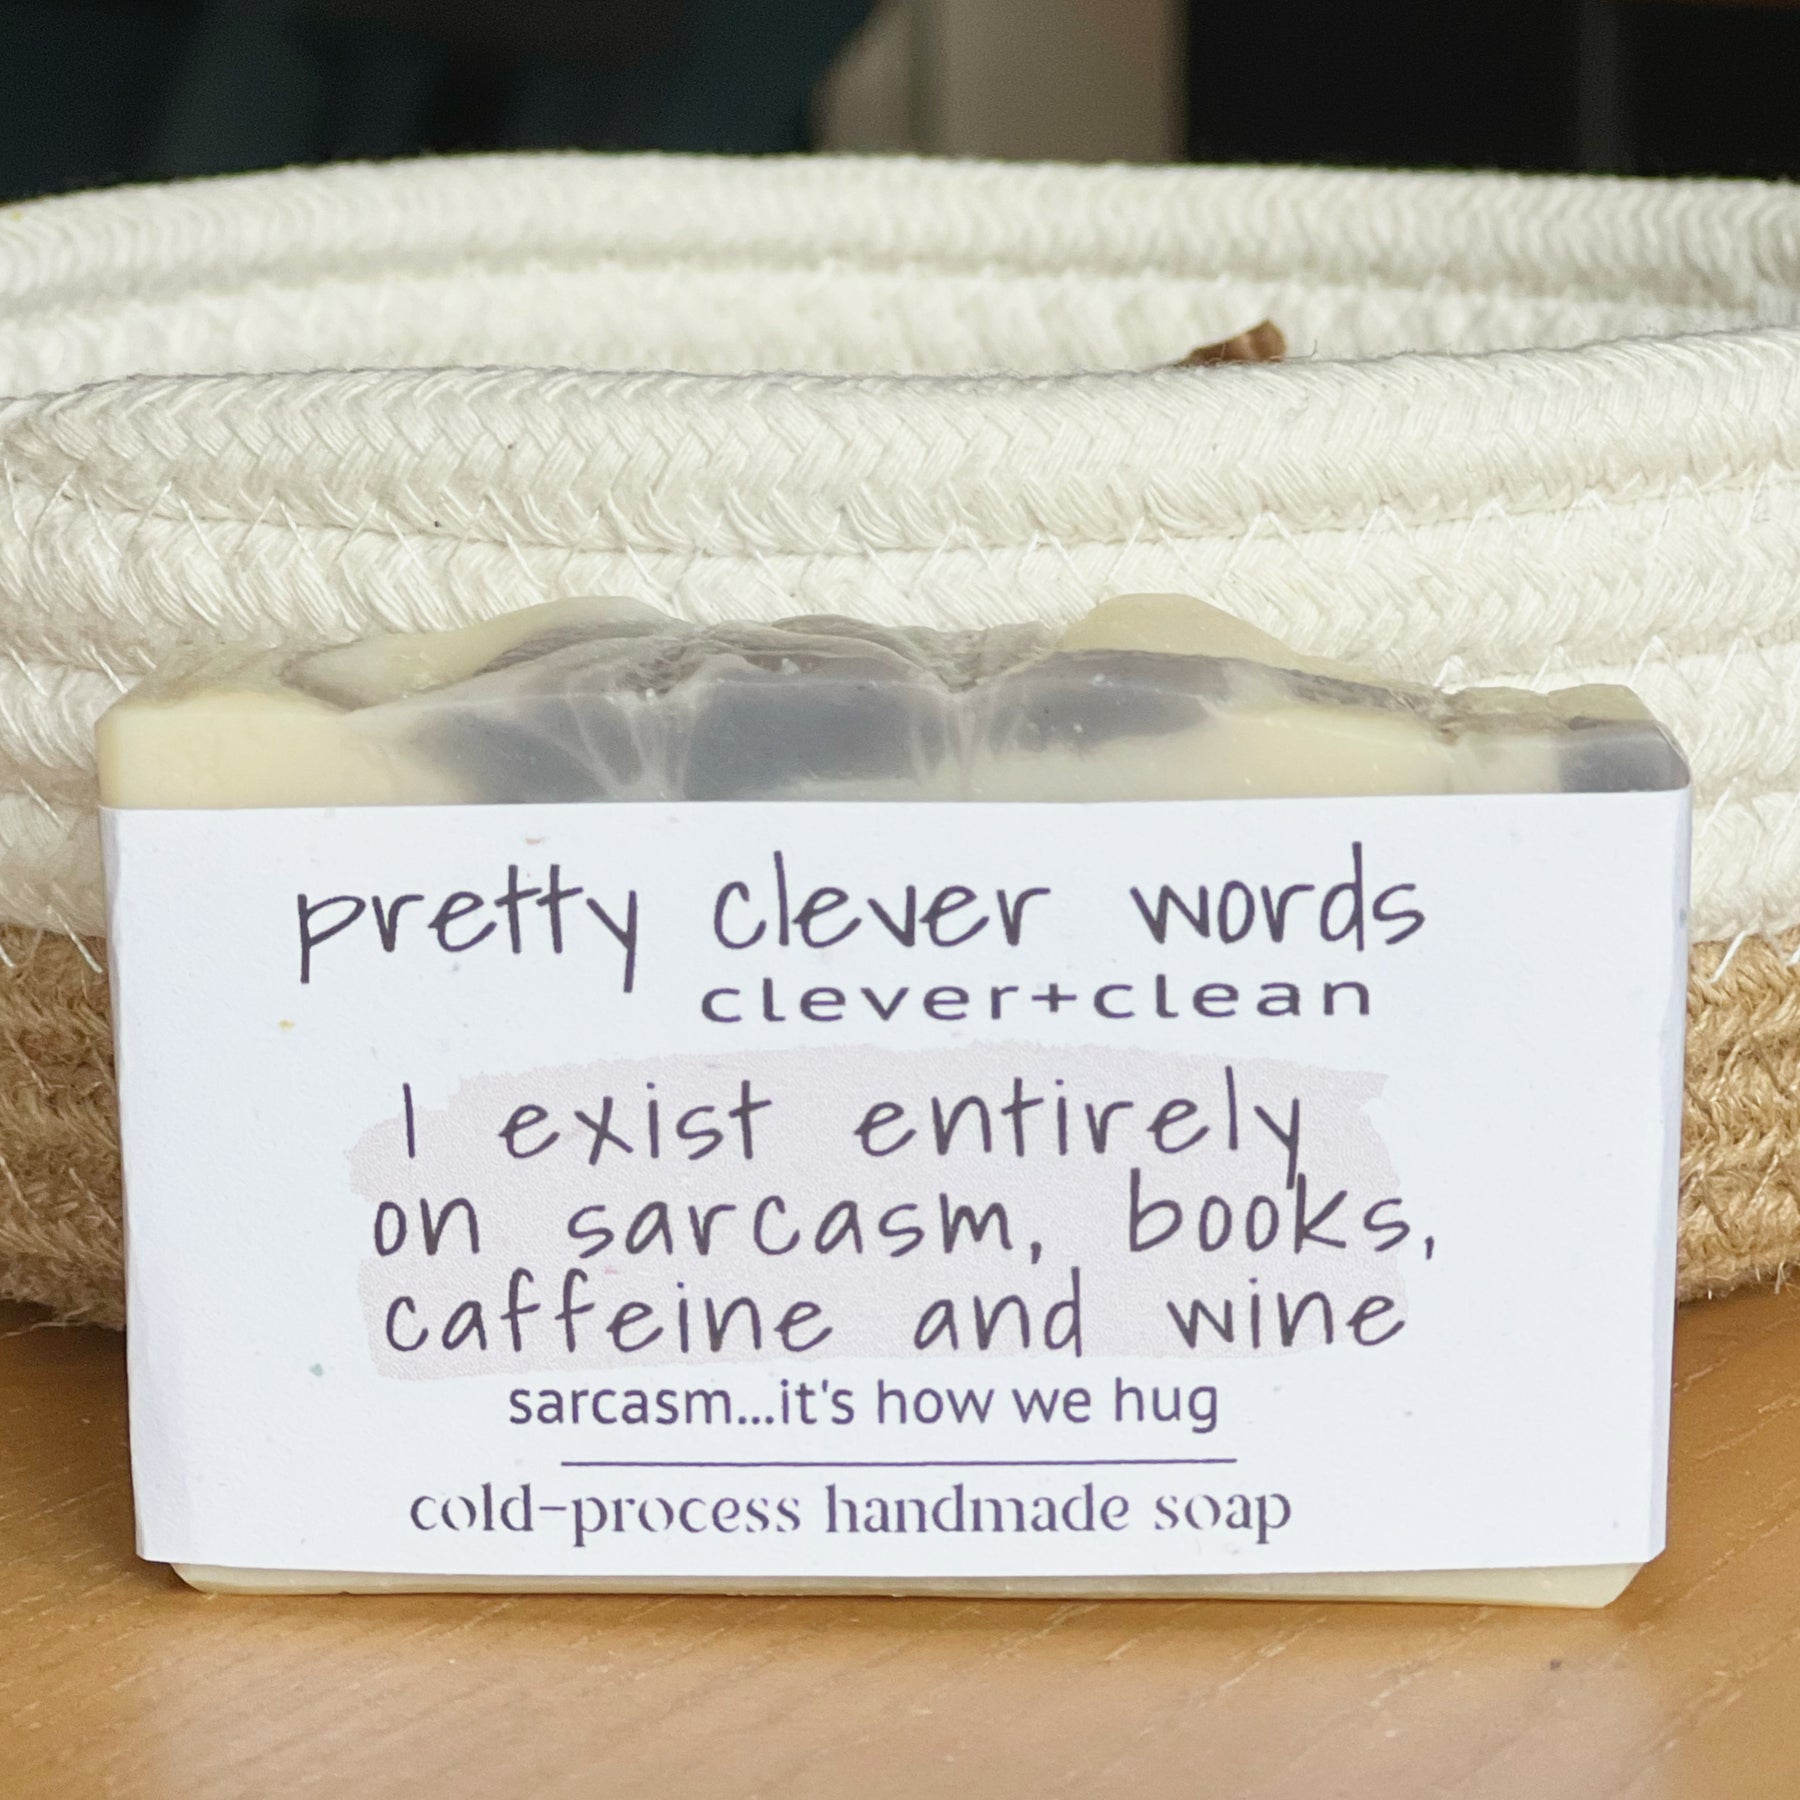 pretty clever words
clever+clean
I exist entirely
on sarcasm, books,
caffeine and wine
sarcasm...it's how we hug
cold-process handmade soap